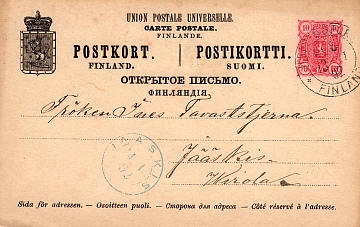 UNION POSTALE UNIVERSELLE.
CARTE POSTALE.
FINLANDE.
POSTKORT. POSTIKORTTI.
FINLAND. SUOMI.
ОТКРЫТОЕ ПИСЬМО.
ФИНЛЯНДІЯ.
10 10
FINLAND
Fröken Ines Tavaststjerna.
JÄÄSKIS
Jääskis.
Wirola.
Sida för adressen. – Osoitteen puoli. – Сторона для адреса – Côté réservé à l'adresse.